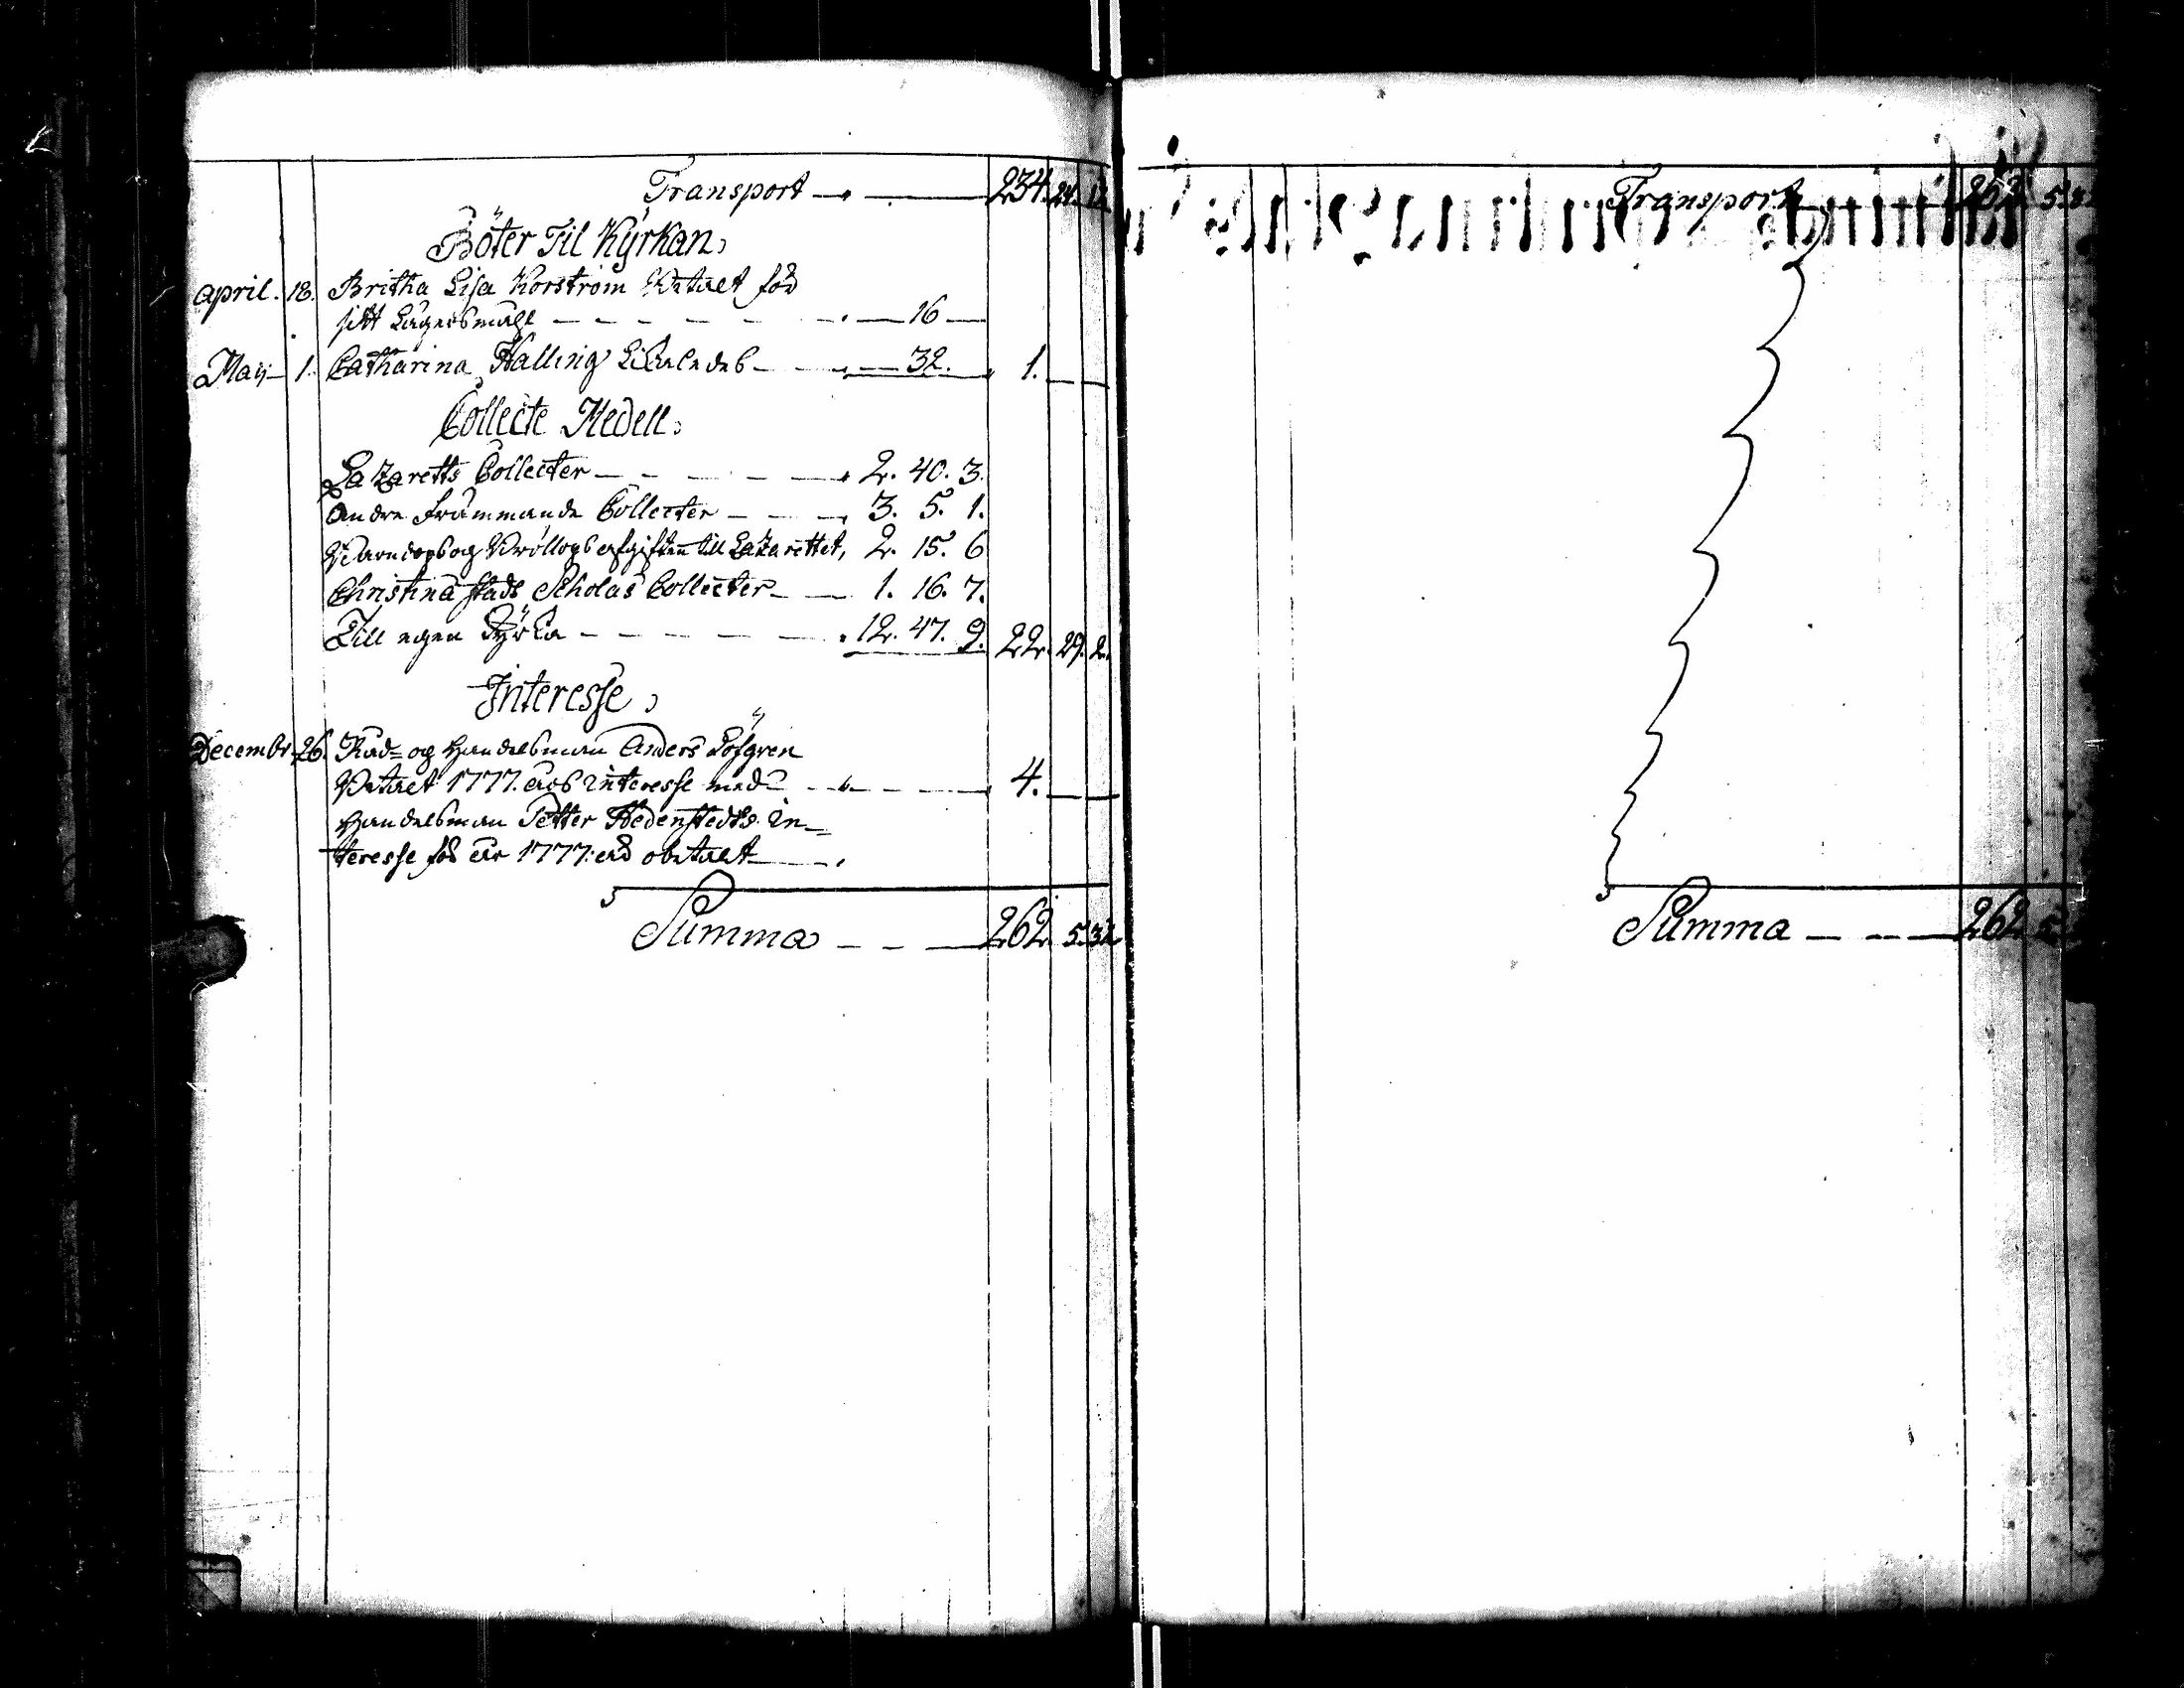 Transport — 234. 24. 1½
Böter Til Kyrkan,
April. 18. Britha Lisa Korström betalt för
sitt Lägersmåhl — 16 —
Maij 1. Catharina Halling likaledes — 32. 1. —
Collecte Medell,
Lazaretts Collecter — 2. 40. 3.
Andre främmande Collecter — 3. 5. 1.
Barndops og Bröllops afgiften till Lazarettet, 2. 15. 6
Christinæ stads Scholas Collecter — 1. 16. 7.
Till egen Kyrka — 12. 47. 9. 22. 29. 2.
Interesse,
Decembr. 26. Råd- og Handelsman Anders Löfgren
betalt 1777. års interesse med — 4. —
Handelsman Petter Hedenstedts in-
teresse för år 1777: är obetalt —
Summa — 262. 5. 3½
Transport — 262. 5. 3
Summa — 262. 5.